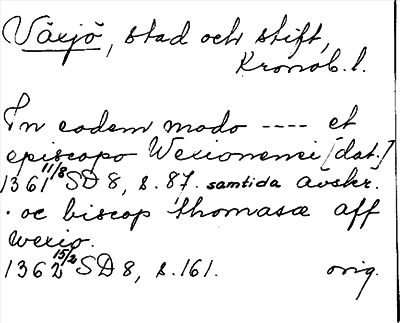 Växjö, stad och stift,
Kronob. l.
In eodem modo ---- et
episcopo Wexionensi [dat.]
1361 11/8 SD 8, s. 87. samtida avskr.
· oc biscop thomasæ aff
wexio.
1362 15/2 SD 8, s. 161. orig.